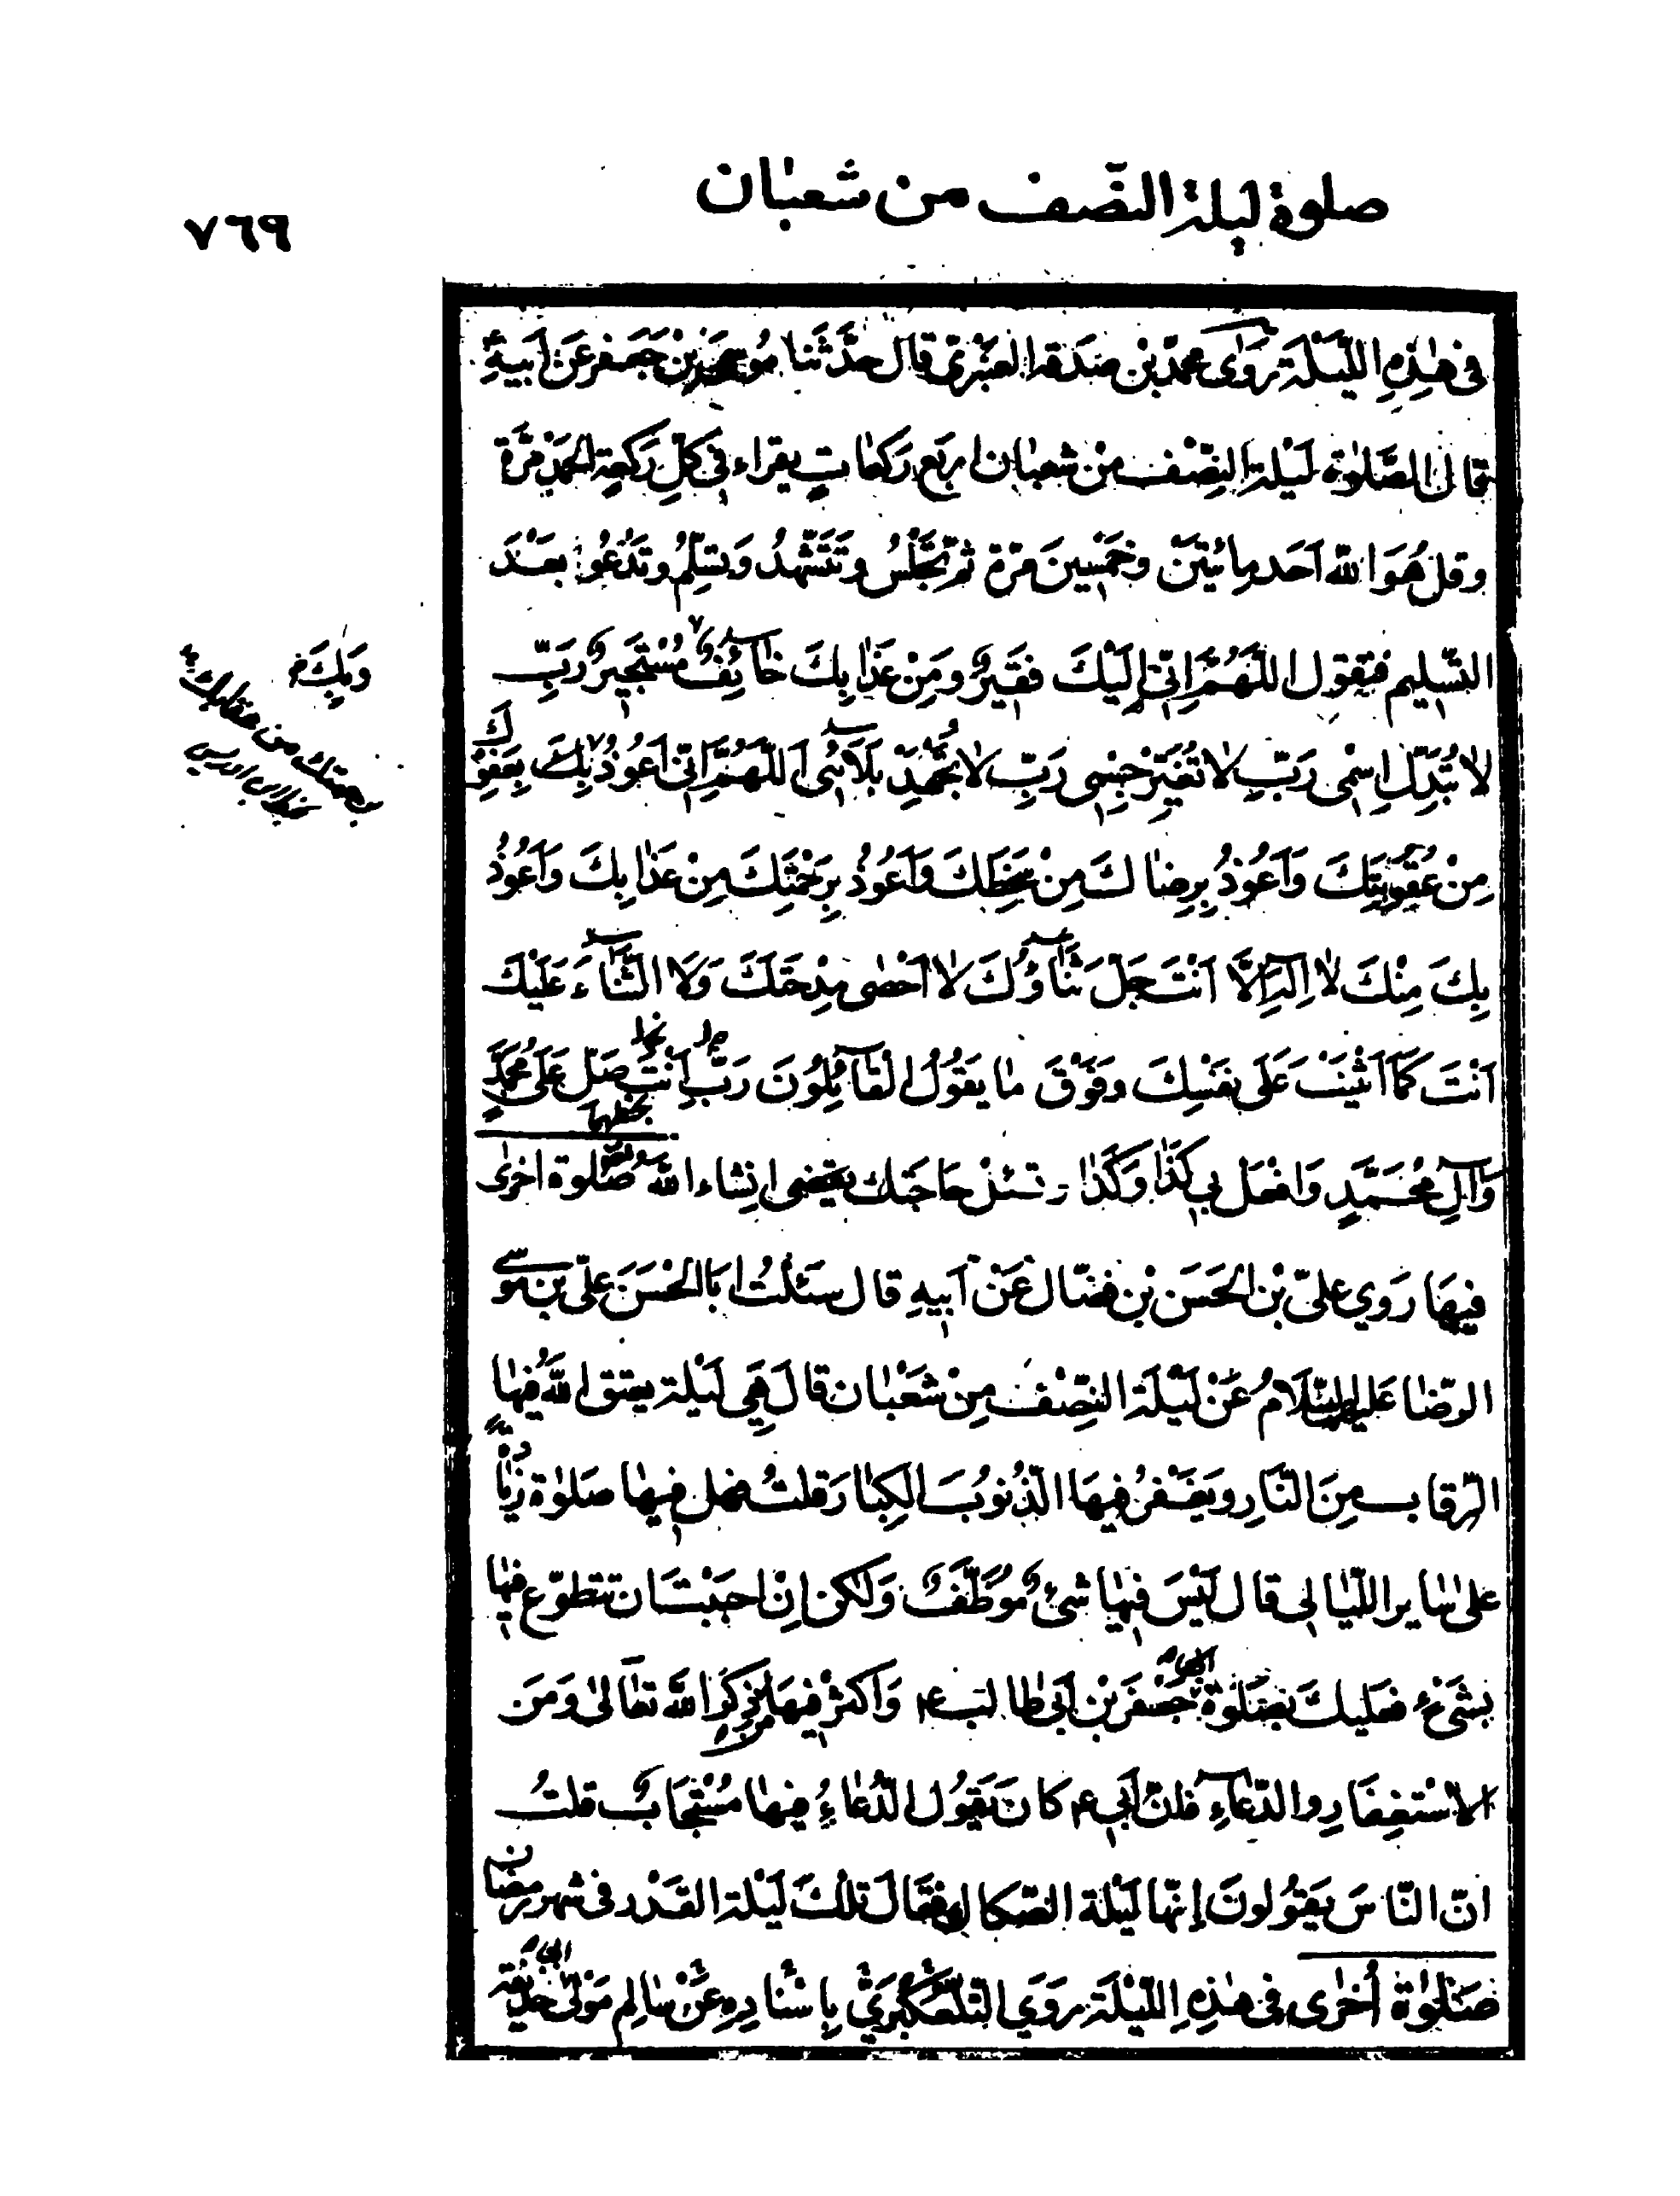 صلوة ليلة النّصف من شعبان
٧٦٩
فى هٰذِهِ اللَّيْلَةِ رَوٰى محمّد بْن صَدَقة العَنْبَرىّ قال حدَّثَنا مُوسَى بْن جَعفر عَنْ اَبيهِ
قال الصَّلوٰة لَيْلة النِّصْف مِنْ شعبٰان اربَع رَكعٰاتٍ يقراء فى كلّ رَكعةٍ الحَمْد مَرَّة
وقل هُوَ اللّٰه اَحَد مِائتَيَن وخَمْسينَ مَرّة ثمّ تَجْلسُ وتَتَشَهّدُ وَتسَلّمُ وتَدْعُوا بعَدَ
التسّليم فتقول اللّهُمَّ اِنّى اِلَيْكَ فقيرٌ ومَنْ عَذٰابِكَ خٰائِفٌ مُسْتَجيرٌ رَبِّ
لا تُبَدِّل اِسْمى رَبِّ لاٰ تُغَيِّرْ جِسْمى رَبِّ لاٰ تُجْهِدْ بَلاٰئى اَللّهُمَّ اِنّى اَعُوذُ بِكَ بِعَفْوِكَ
مِنْ عُقُوبَتِكَ وَاَعُوذُ بِرِضٰاكَ مِنْ سَخَطِكَ وَاَعُوذُ بِرَحْمَتِكَ مِنْ عَذٰابِكَ وَاَعُوذُ
بِكَ مِنْكَ لاٰ اِلٰهَ اِلاَّ اَنْتَ جَلّ ثَنٰاؤُكَ لاٰ اُحْصٰى مِدْحَتَكَ وَلَا الثَّنٰاءَ عَلَيْكَ
اَنْتَ كَمٰا اَثْنَيْتَ عَلىٰ نَفْسِكَ وفَوْقَ مٰا يَقُولُ القٰائِلُونَ رَبِّ اَنْتَ صَلّ عَلىٰ مُحَمَّدٍ
وَاٰلِ مُحَمَّدٍ وَافعَل بى كَذٰا وَكَذٰا وتسئل حٰاجَتك يقضى انشاء اللّٰه صَلوة اخرٰى
فيهَا رَوٰى علىّ بْن الحَسَن بْن فضّال عَنْ اَبيهِ قال سَئَلْتُ اَبَا الحْسَنَ علىّ بن مُوسى
الرّضا عَليه السّلاٰمُ عَنْ لَيْلَة النّصِْف مِنْ شَعْبٰان قالَ هَىِ لَيْلة يعتق اللّٰهُ فيهٰا
الرّقاب مِنَ النّٰارِ وَيَغْفرُ فيهَا الذُّنُوبَ الكِبٰارَ قلتُ فهل فيهٰا صَلوٰة زيٰادَة
علىٰ سٰاير اللّيٰالى قال لَيْسَ فيهٰا شئٌ مُوَظّفٌ وَلٰكن اِنْ احبَبْتَ ان تتطوّع فيهٰا
بشَىْءٍ فعليكَ بصَلوٰة جَعْفَر بن اَبى طٰالبٍ ع وَاَكثرْ فيهَا مِنْ ذِكرِ اللّٰه تعٰالىٰ وَمَن
الاسْتغِفَارِ والدّعاءِ فانّ اَبى ع كانَ يَقُول الدُّعٰاءُ فيهٰا مُسْتجَابٌ قلتُ
انّ النّاسَ يَقُولونَ اِنّها لَيْلة الصّكاك فقٰالَ تلكَ لَيْلة القَدْر فى شهر رمضان
صَلوٰة اُخرٰى فى هٰذِهِ اللّيْلَة رَوَى التَّلّعُكْبَرىّ بِاسْنٰادِهِ عَنْ سٰالِم مَوْلى حُذيْفة
وَبِكَ